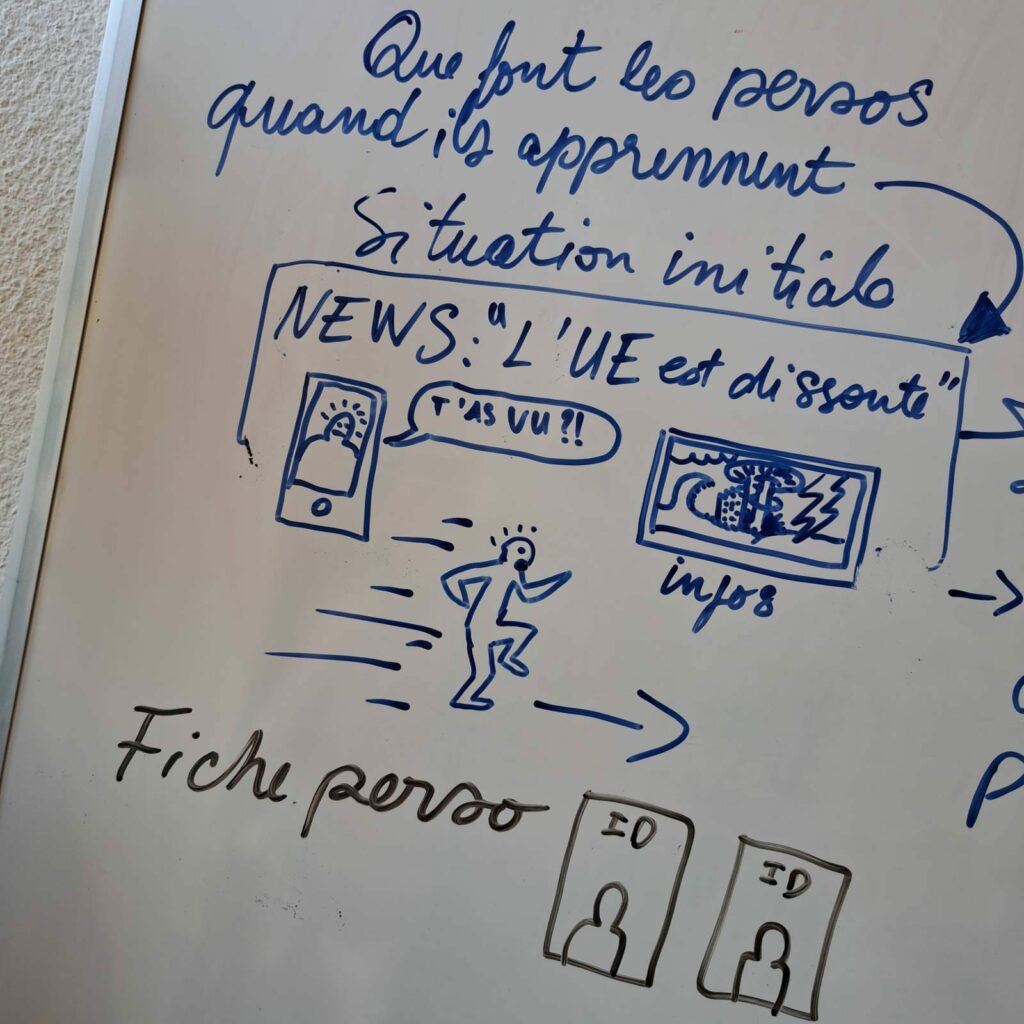 Que font les persos
quand ils apprennent
Situation initiale
NEWS: "L'UE est dissoute"
T'AS VU ?!
infos
Fiche perso
ID
ID